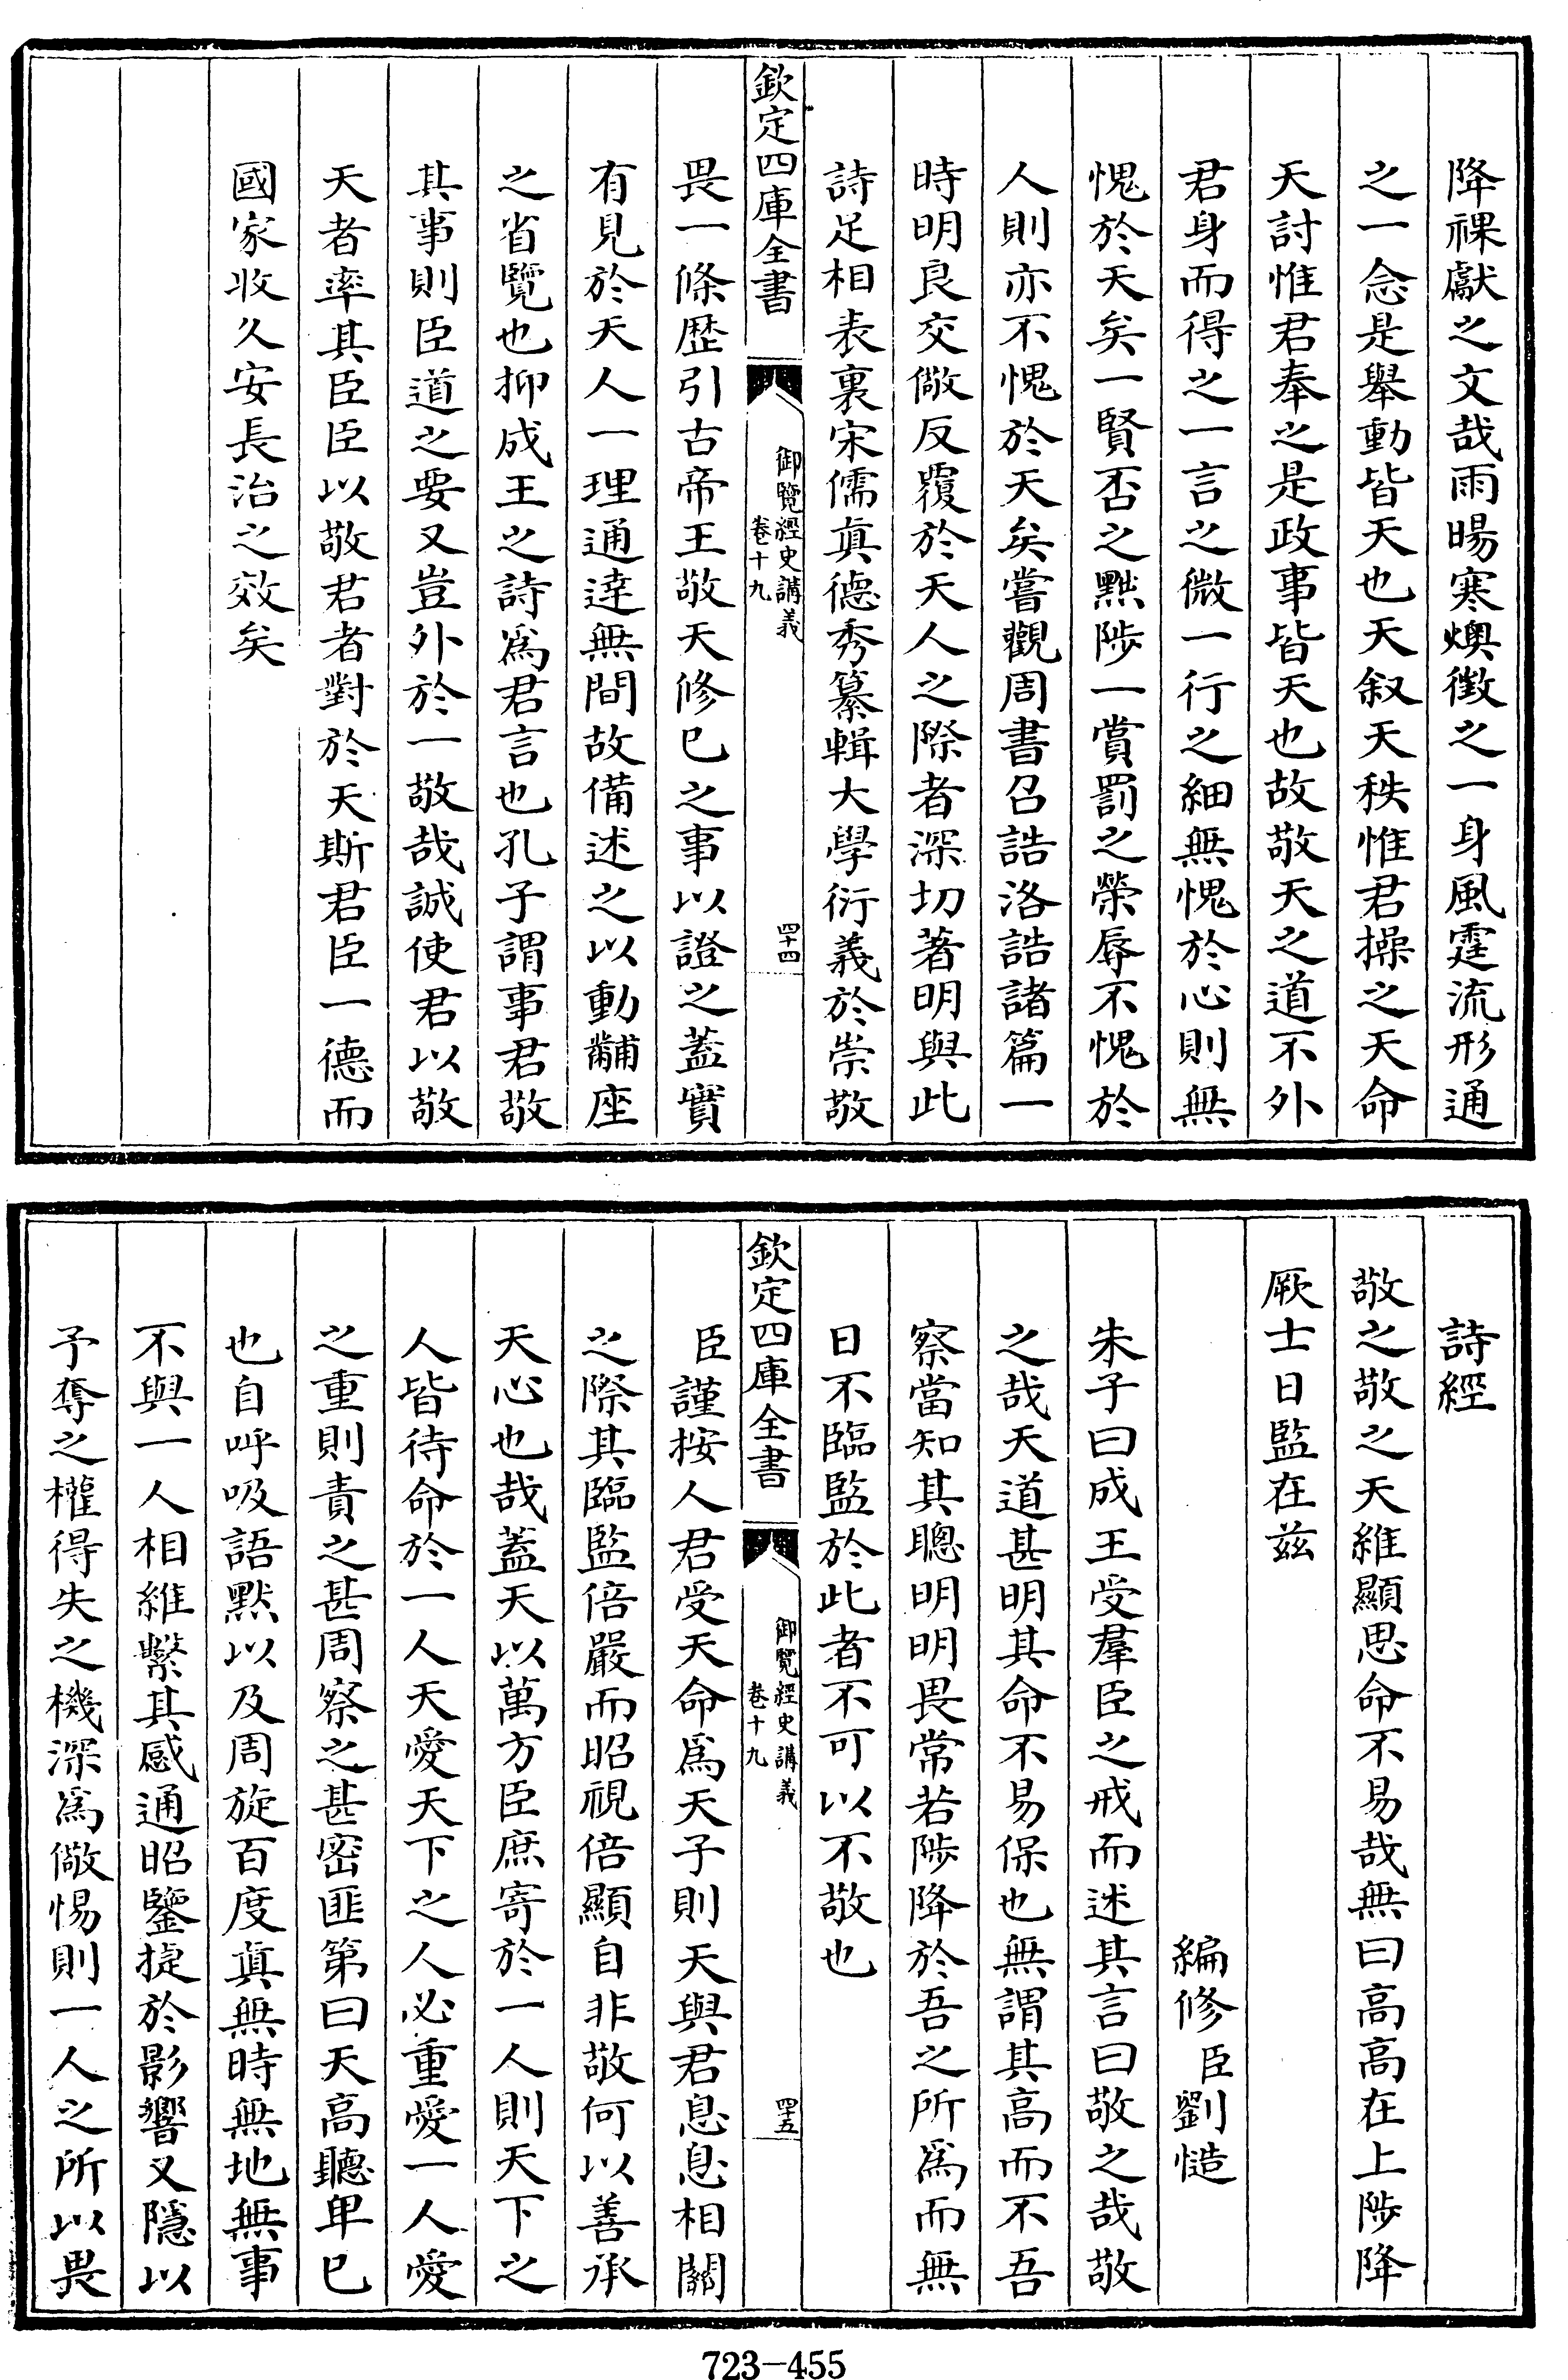 降祼獻之文哉雨暘寒燠徵之一身風霆流形通
之一念是舉動皆天也天叙天秩惟君操之天命
天討惟君奉之是政事皆天也故敬天之道不外
君身而得之一言之微一行之細無愧於心則無
愧於天矣一賢否之黜陟一賞罰之榮辱不愧於
人則亦不愧於天矣嘗觀周書召誥洛誥諸篇一
時明良交儆反覆於天人之際者深切著明與此
詩足相表裏宋儒真德秀纂輯大學衍義於崇敬
欽定四庫全書
御覽經史講義
卷十九
四十四
畏一條歷引古帝王敬天修已之事以證之蓋實
有見於天人一理通達無間故備述之以動黼座
之省覽也抑成王之詩爲君言也孔子謂事君敬
其事則臣道之要又豈外於一敬哉誠使君以敬
天者率其臣臣以敬君者對於天斯君臣一德而
國家收久安長治之效矣
詩經
敬之敬之天維顯思命不易哉無曰高高在上陟降
厥士日監在兹
編修臣劉慥
朱子曰成王受羣臣之戒而述其言曰敬之哉敬
之哉天道甚明其命不易保也無謂其高而不吾
察當知其聰明明畏常若陟降於吾之所爲而無
日不臨監於此者不可以不敬也
欽定四庫全書
御覽經史講義
卷十九
四十五
臣謹按人君受天命爲天子則天與君息息相關
之際其臨監倍嚴而昭視倍顯自非敬何以善承
天心也哉蓋天以萬方臣庶寄於一人則天下之
人皆待命於一人天愛天下之人必重愛一人愛
之重則責之甚周察之甚密匪第曰天高聽卑已
也自呼吸語默以及周旋百度真無時無地無事
不與一人相維繫其感通昭鑒捷於影響又隱以
予奪之權得失之機深爲儆惕則一人之所以畏
723-455